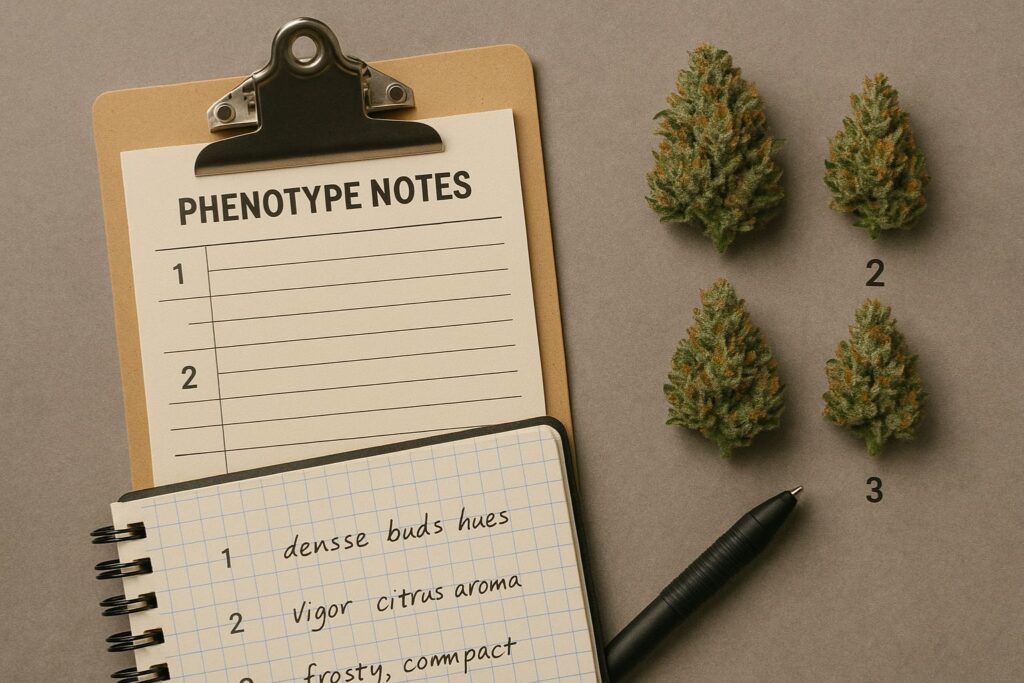 PHENOTYPE NOTES
1
2
1 densse buds hues
2 Vigor citrus aroma
frosty, commpact
2
3